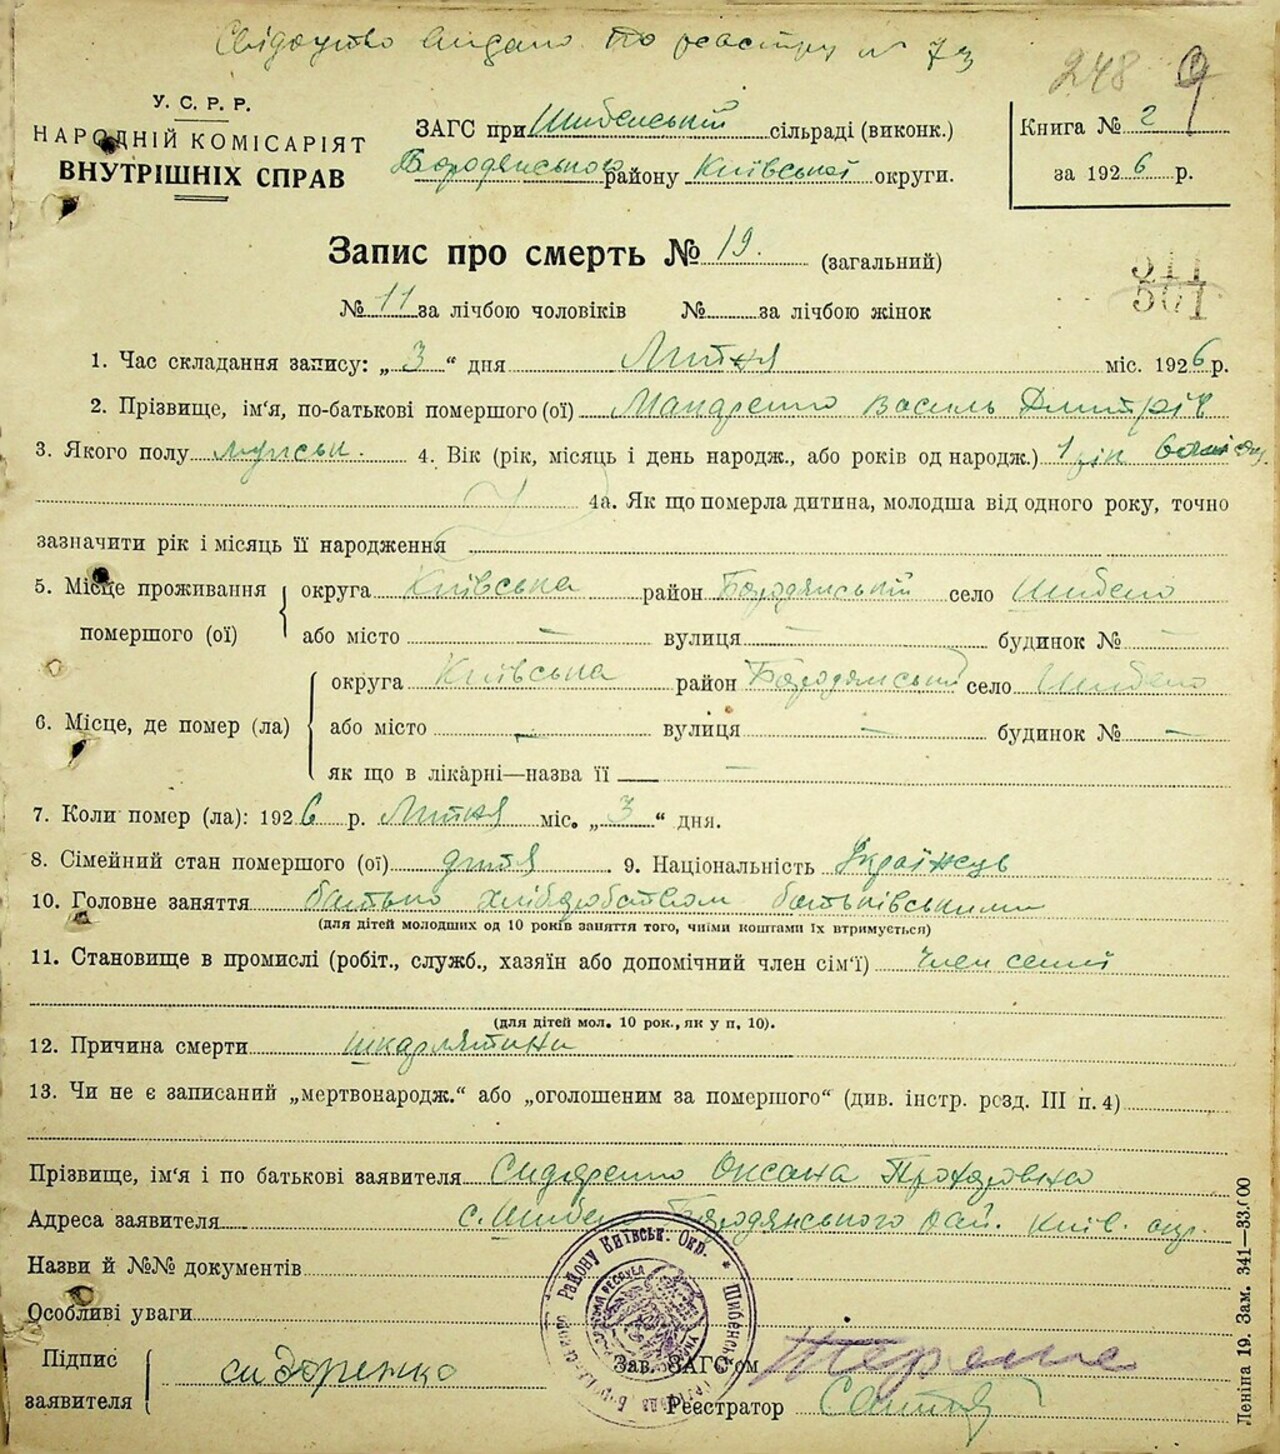 Свідоцтво видано по реєстру № 73
248 9
У. С. Р. Р.
НАРОДНІЙ КОМІСАРІЯТ
ВНУТРІШНІХ СПРАВ
ЗАГС при Шибенській сільраді (виконк.)
Бородянського району Київської округи.
Книга № 2
за 1926 р.
Запис про смерть № 19. (загальний)
№ 11 за лічбою чоловіків № за лічбою жінок
1. Час складання запису: „3“ дня Липня міс. 1926 р.
2. Прізвище, ім'я, по-батькові помершого (ої) Василь
3. Якого полу 4. Вік (рік, місяць і день народж., або років од народж.) 1 рік
4а. Як що померла дитина, молодша від одного року, точно
зазначити рік і місяць її народження
5. Місце проживання помершого (ої) округа Київська район Бородянський село Шибено
або місто — вулиця — будинок № —
6. Місце, де помер (ла) округа Київська район Бородянський село Шибено
або місто — вулиця — будинок № —
як що в лікарні—назва її —
7. Коли помер (ла): 1926 р. Липня міс. „3“ дня.
8. Сімейний стан помершого (ої) дитя . 9. Національність Українець
10. Головне заняття батько
(для дітей молодших од 10 років заняття того, чиїми коштами їх втримується)
11. Становище в промислі (робіт., служб., хазяїн або допомічний член сім'ї) член семії
(для дітей мол. 10 рок., як у п. 10).
12. Причина смерти шкарлятина
13. Чи не є записаний „мертвонародж.“ або „оголошеним за помершого“ (див. інстр. розд. III п. 4)
Прізвище, ім'я і по батькові заявителя Сидоренко Оксана
Адреса заявителя с. Шибено Бородянського рай. Київ. окр.
Назви й №№ документів
Особливі уваги
Підпис заявителя сидоренко
Зав. ЗАГС'ом
Реєстратор
Району Київськ. Окр. * Шибенськ
Леніна 19. Зам. 341—33.000